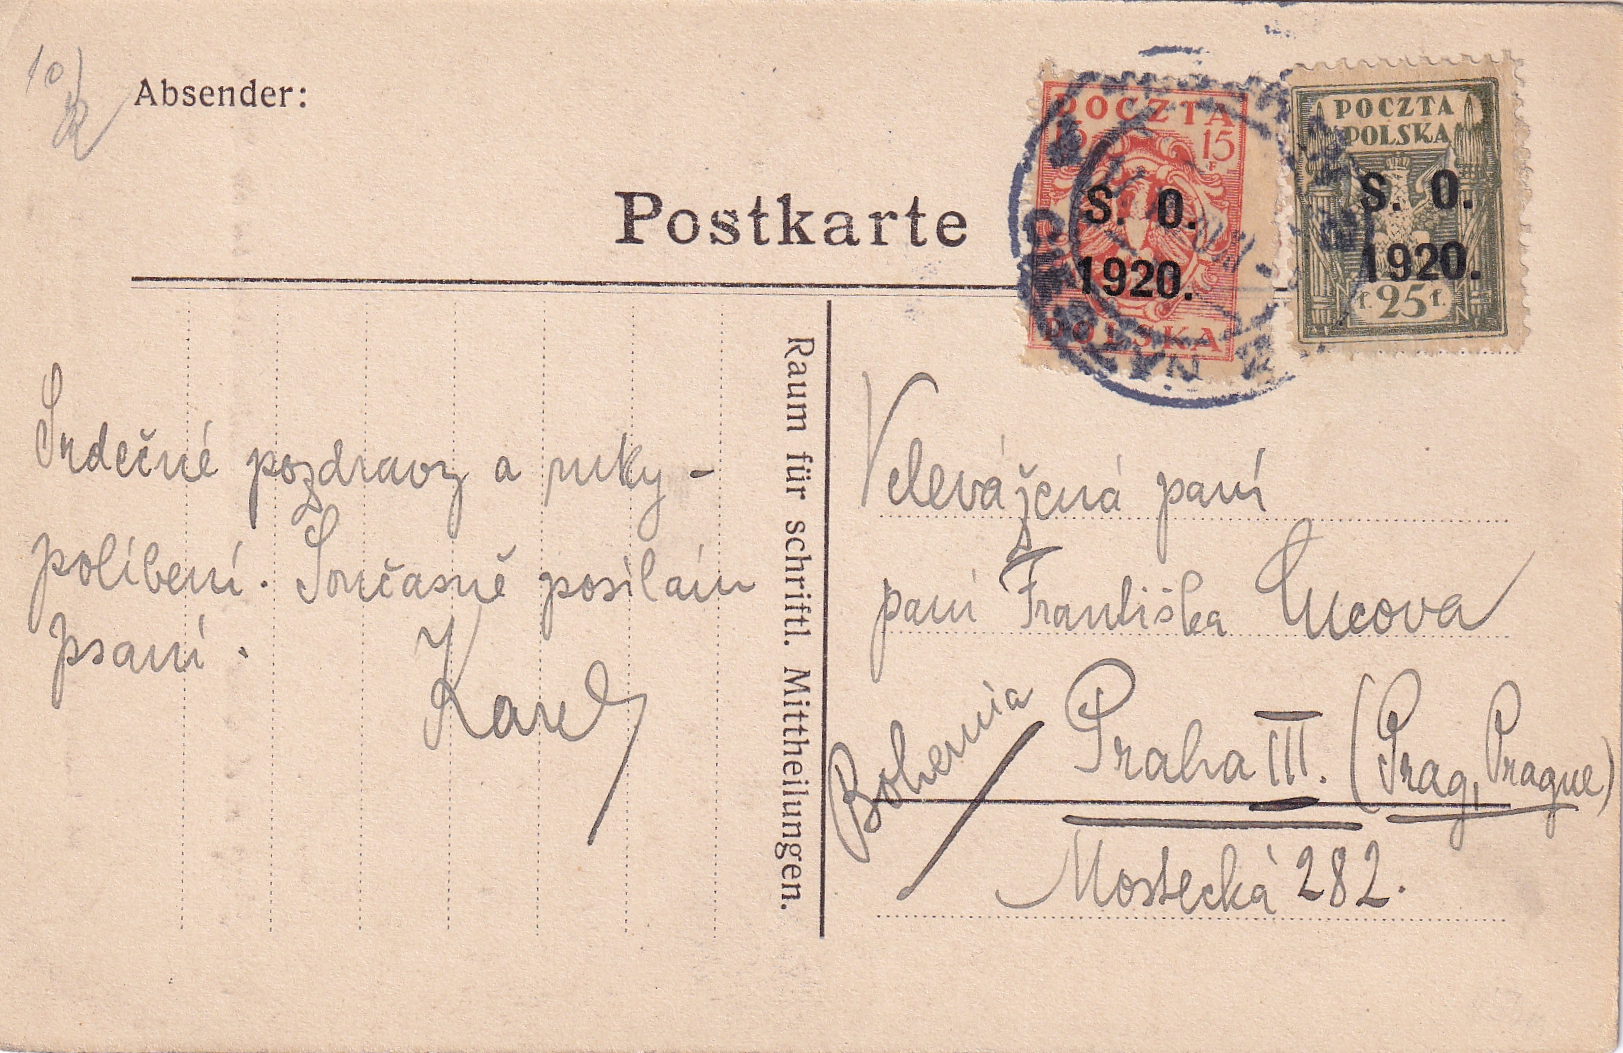 10
Absender:
Postkarte
POCZTA
15
S. O.
1920.
POLSKA
POCZTA
POLSKA
S. O.
1920.
f. 25 f.
Raum für schriftl. Mittheilungen.
Srdečné pozdravy a ruky-
políbení. Současně posílám
psaní.
Karel
Velevážená paní
paní Františka
Bohemia
Praha III. (Prag, Prague)
Mostecká 282.